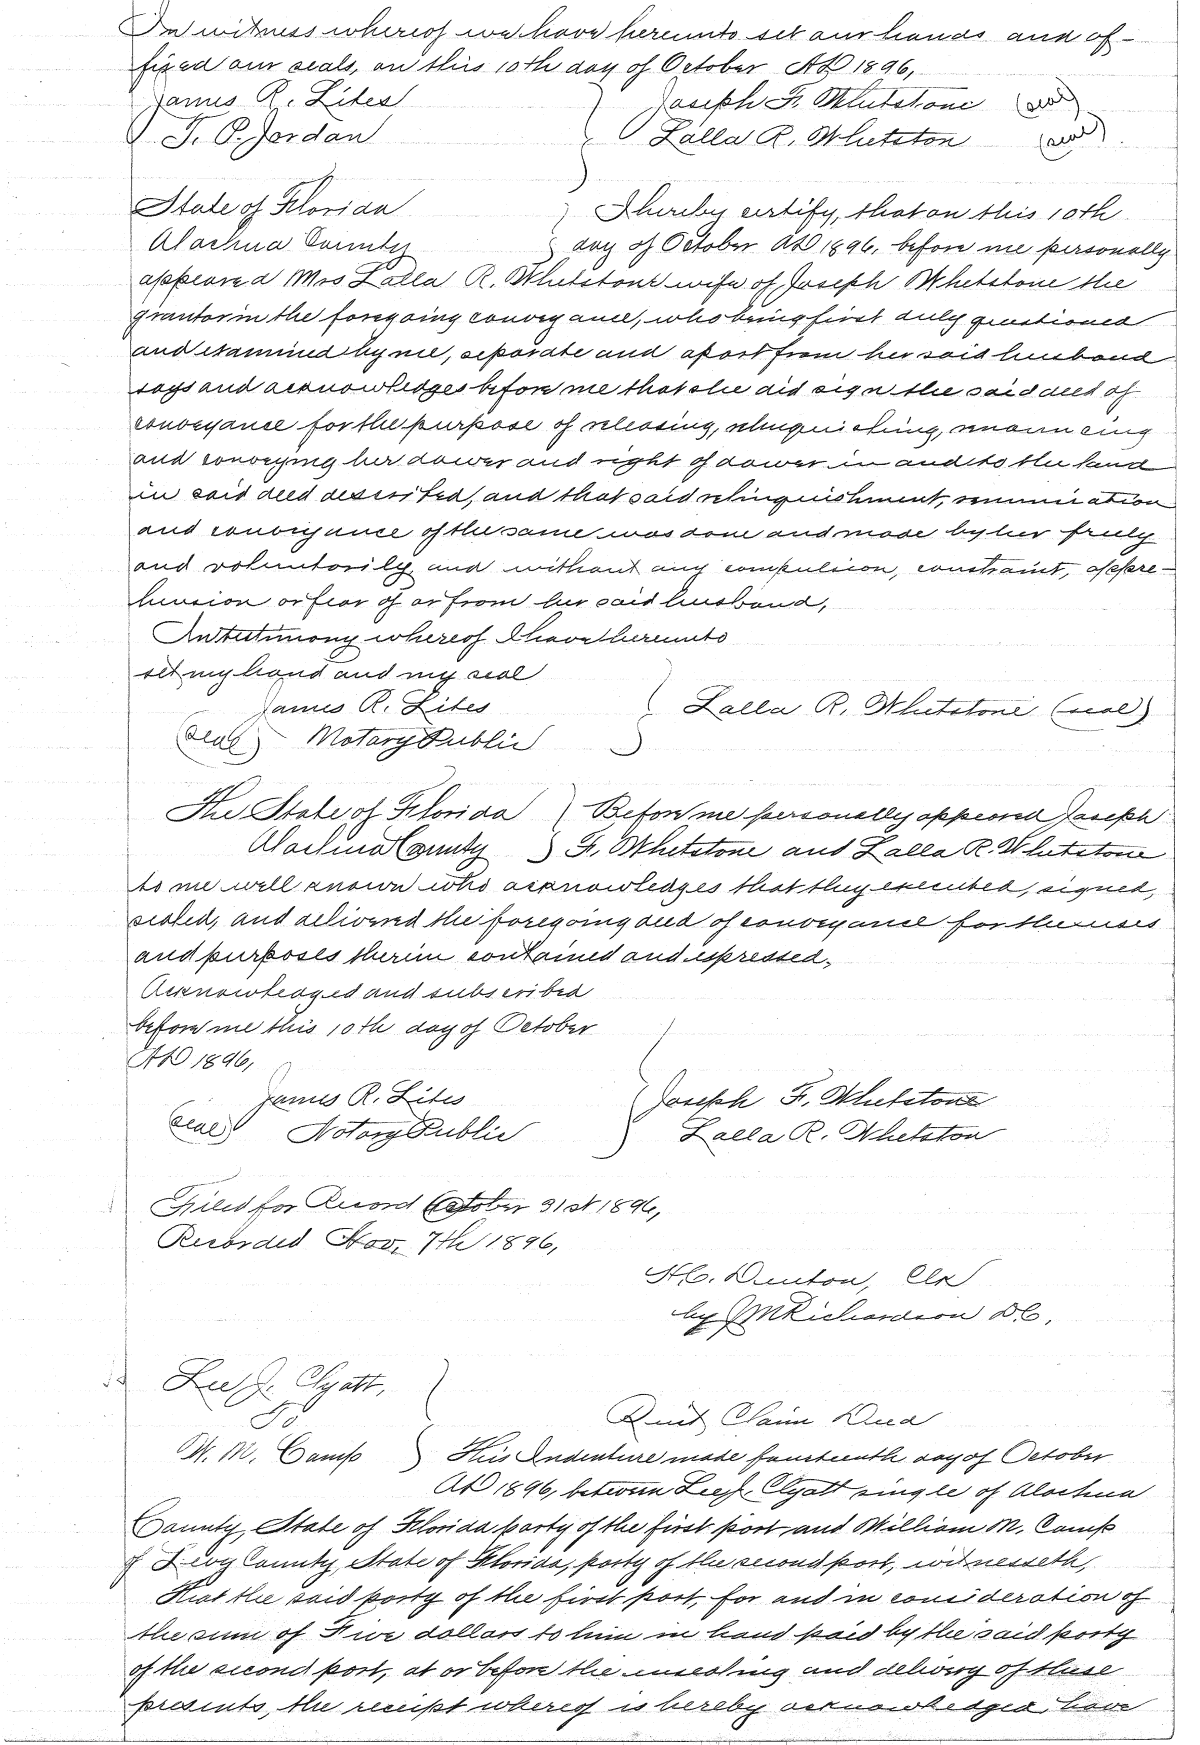 In witness whereof we have hereunto set our hands and af-
fixed our seals, on this 10th day of October AD 1896,
James R. Lites } Joseph F. Whetstone (seal)
T. P. Jordan } Lalla R. Whetston (seal)
State of Florida } I hereby certify, that on this 10th
Alachua County } day of October AD 1896, before me personally
appeared Mrs Lalla R. Whetstone wife of Joseph Whetstone the
grantor in the foregoing conveyance, who being first duly questioned
and examined by me, separate and apart from her said husband
says and acknowledges before me that she did sign the said deed of
conveyance for the purpose of releasing, relinquishing, renouncing
and conveying her dower and right of dower in and to the land
in said deed described, and that said relinquishment, renunciation
and conveyance of the same was done and made by her freely
and voluntarily and without any compulsion, constraint, appre-
hension or fear of or from her said husband,
In testimony whereof I have hereunto
set my hand and my seal
James R. Lites } Lalla R. Whetstone (seal)
(seal) Notary Public }
The State of Florida } Before me personally appeared Joseph
Alachua County } F. Whetstone and Lalla R. Whetstone
to me well known who acknowledges that they executed, signed,
sealed, and delivered the foregoing deed of conveyance for the uses
and purposes therein contained and expressed,
Acknowledged and subscribed
before me this 10th day of October
AD 1896,
James R. Lites } Joseph F. Whetstone
(seal) Notary Public } Lalla R. Whetston
Filed for Record October 31st 1896,
Recorded Nov. 7th 1896,
H.C. Denton, Clk
by J M Richardson D.C.
Lee J. Clyatt,
To Quit Claim Deed
W. M. Camp } This Indenture made fourteenth day of October
AD 1896, between Lee J. Clyatt single of Alachua
County, State of Florida party of the first part, and William M. Camp
of Levy County, State of Florida, party of the second part, witnesseth,
that the said party of the first part, for and in consideration of
the sum of Five dollars to him in hand paid by the said party
of the second part, at or before the ensealing and delivery of these
presents, the receipt whereof is hereby acknowledged, have